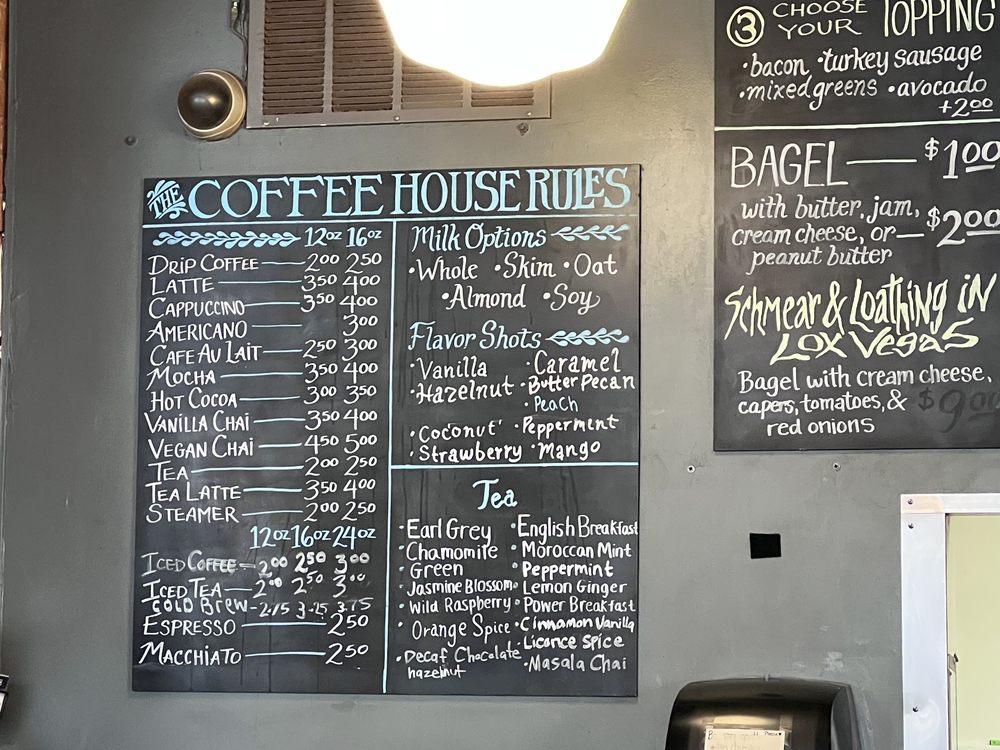 THE COFFEE HOUSE RULES
12oz 16oz
DRIP COFFEE 2.00 2.50
LATTE 3.50 4.00
CAPPUCCINO 3.50 4.00
AMERICANO 3.00
CAFE AU LAIT 2.50 3.00
MOCHA 3.50 4.00
HOT COCOA 3.00 3.50
VANILLA CHAI 3.50 4.00
VEGAN CHAI 4.50 5.00
TEA 2.00 2.50
TEA LATTE 3.50 4.00
STEAMER 2.00 2.50
12oz 16oz 24oz
ICED COFFEE 2.00 2.50 3.00
ICED TEA 2.00 2.50 3.00
COLD BREW - 2.75 3.25 3.75
ESPRESSO 2.50
MACCHIATO 2.50
Milk Options
•Whole •Skim •Oat
•Almond •Soy
Flavor Shots
•Vanilla •Caramel
•Hazelnut •Butter Pecan
•Peach
•Coconut •Pepperment
•Strawberry •Mango
Tea
•Earl Grey •English Breakfast
•Chamomile •Moroccan Mint
•Green •Peppermint
•Jasmine Blossom •Lemon Ginger
•Wild Raspberry •Power Breakfast
•Orange Spice •Cinnamon Vanilla
•Licorice Spice
•Decaf Chocolate hazelnut •Masala Chai
③ CHOOSE YOUR TOPPING
•bacon •turkey sausage
•mixed greens •avocado
+2.00
BAGEL — $1.00
with butter, jam,
cream cheese, or — $2.00
peanut butter
Schmear & Loathing in
Lox Vegas
Bagel with cream cheese,
capers, tomatoes, & $9.00
red onions